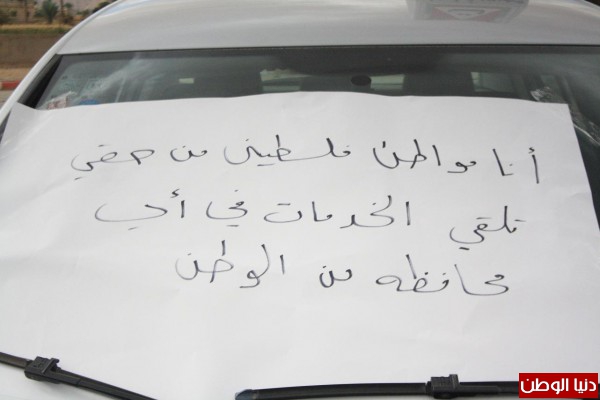 أنا مواطن فلسطيني من حقي
تلقي الخدمات في أي
محافظه من الوطن
دنيا الوطن